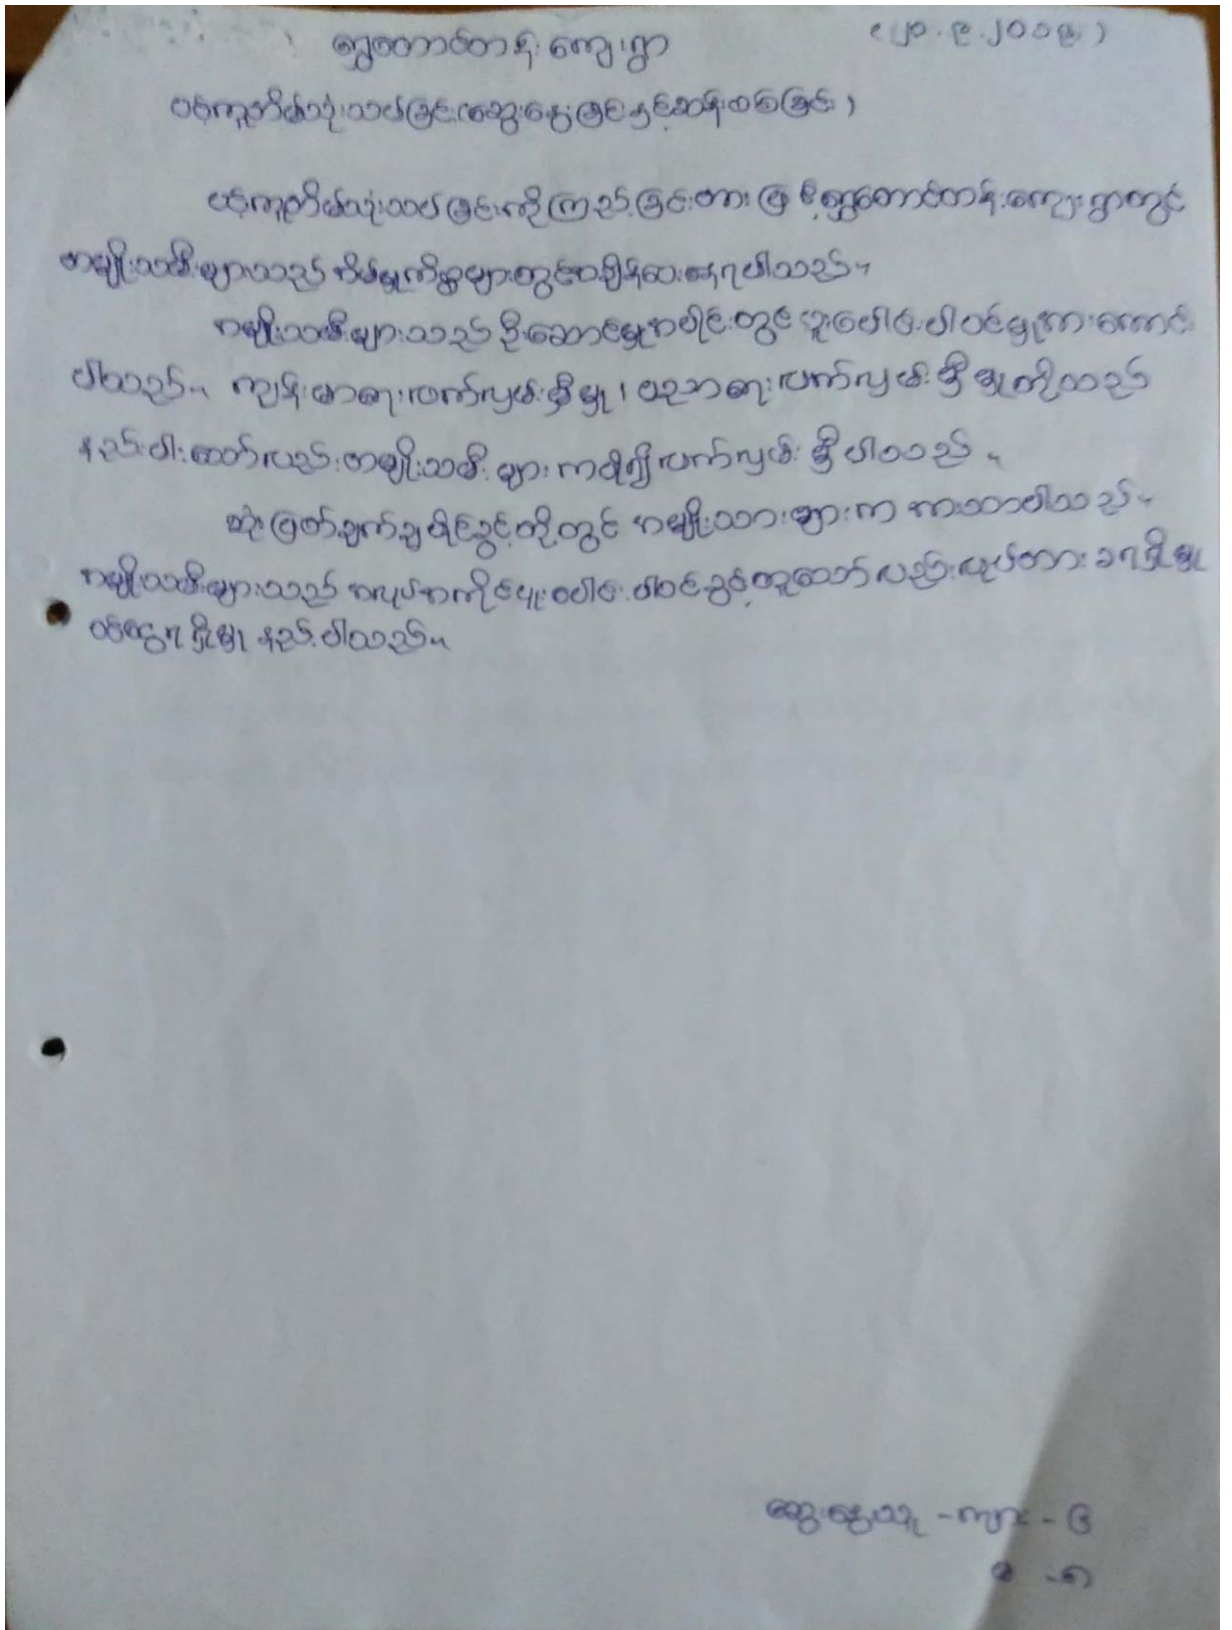 (၂၁.၉.၂၀၁၉)
ရွှေတောင်တန်းကျေးရွာ
ပင့်ကူအိမ်သုံးသပ်ခြင်း(ဆွေးနွေးခြင်းနှင့်ဆန်းစစ်ခြင်း)
ပင့်ကူအိမ်သုံးသပ်ခြင်းကိုကြည့်ခြင်းအားဖြင့်ရွှေတောင်တန်းကျေးရွာတွင်
အမျိုးသမီးများသည် အိမ်မှုကိစ္စများတွင်အချိန်ပေးနေရပါသည်။
အမျိုးသမီးများသည် ဦးဆောင်မှုအပိုင်းတွင် ပူးပေါင်းပါဝင်မှုအားကောင်း
ပါသည်။ ကျန်းမာရေးလက်လှမ်းမှီမှု၊ ပညာရေးလက်လှမ်းမှီမှုတို့သည်
နည်းပါးသော်လည်းအမျိုးသမီးများကပို၍လက်လှမ်းမှီပါသည်။
ဆုံးဖြတ်ချက်ချပိုင်ခွင့်တို့တွင် အမျိုးသားများက အားသာပါသည်။
အမျိုးသမီးများသည် အလုပ်အကိုင်ပူးပေါင်းပါဝင်ခွင့်တူသော်လည်းလုပ်အားခရရှိမှု
ဝင်ငွေရရှိမှု နည်းပါသည်။
ဆွေးနွေးသူ - ကျား - ၆
မ - ၈